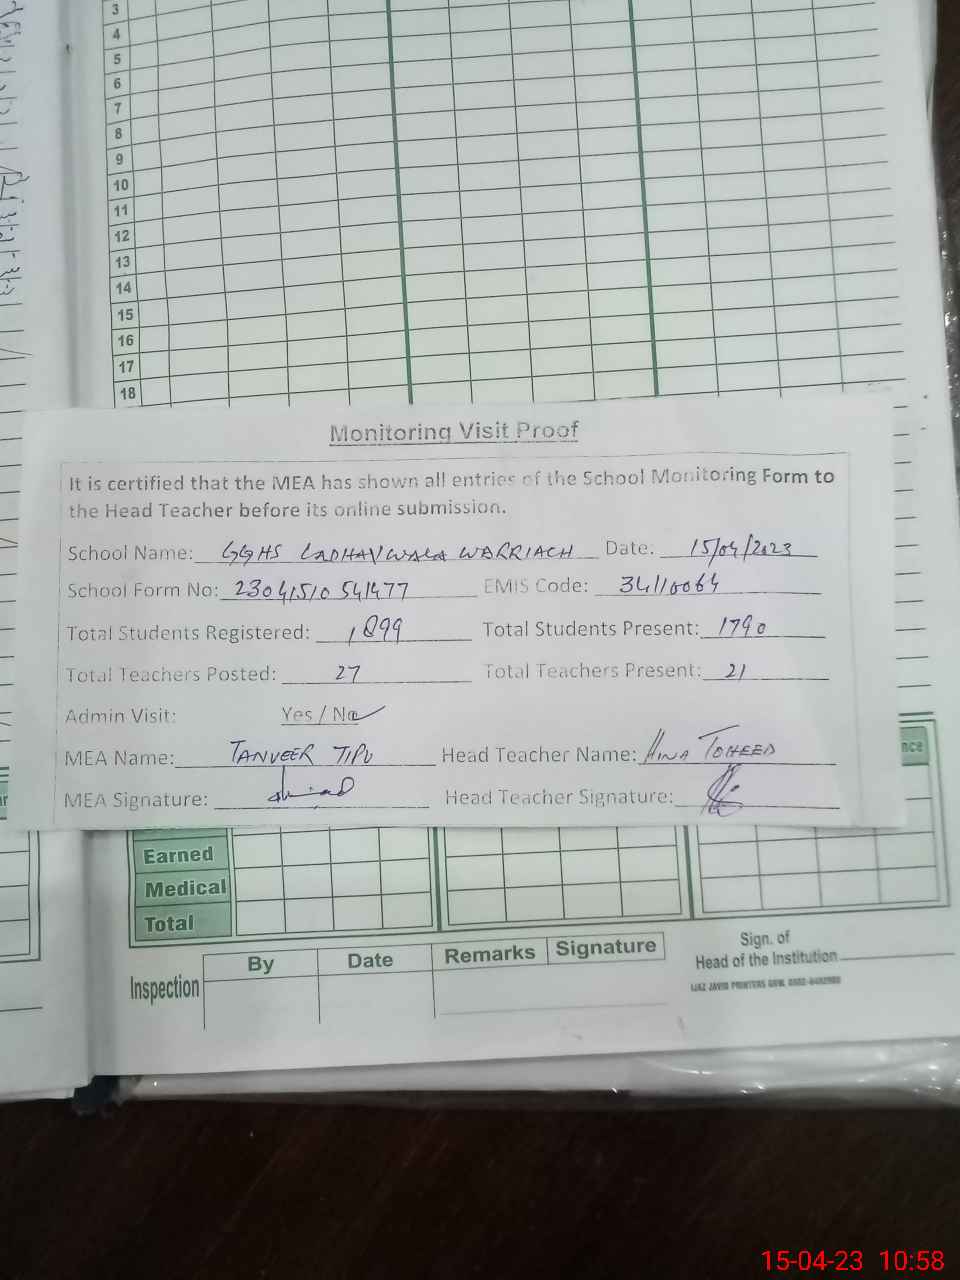 3
4
5
6
7
8
9
10
11
12
13
14
15
16
17
18
Monitoring Visit Proof
It is certified that the MEA has shown all entries of the School Monitoring Form to
the Head Teacher before its online submission.
School Name: GGHS LADHAYWALA WARRIACH Date: 15/04/2023
School Form No: 23041510541477 EMIS Code: 34110064
Total Students Registered: 1899 Total Students Present: 1790
Total Teachers Posted: 27 Total Teachers Present: 21
Admin Visit: Yes / No
MEA Name: TANVEER TIPU Head Teacher Name: HINA TOHEED
MEA Signature: Head Teacher Signature:
Earned
Medical
Total
Inspection By Date Remarks Signature
Sign. of
Head of the Institution
15-04-23 10:58